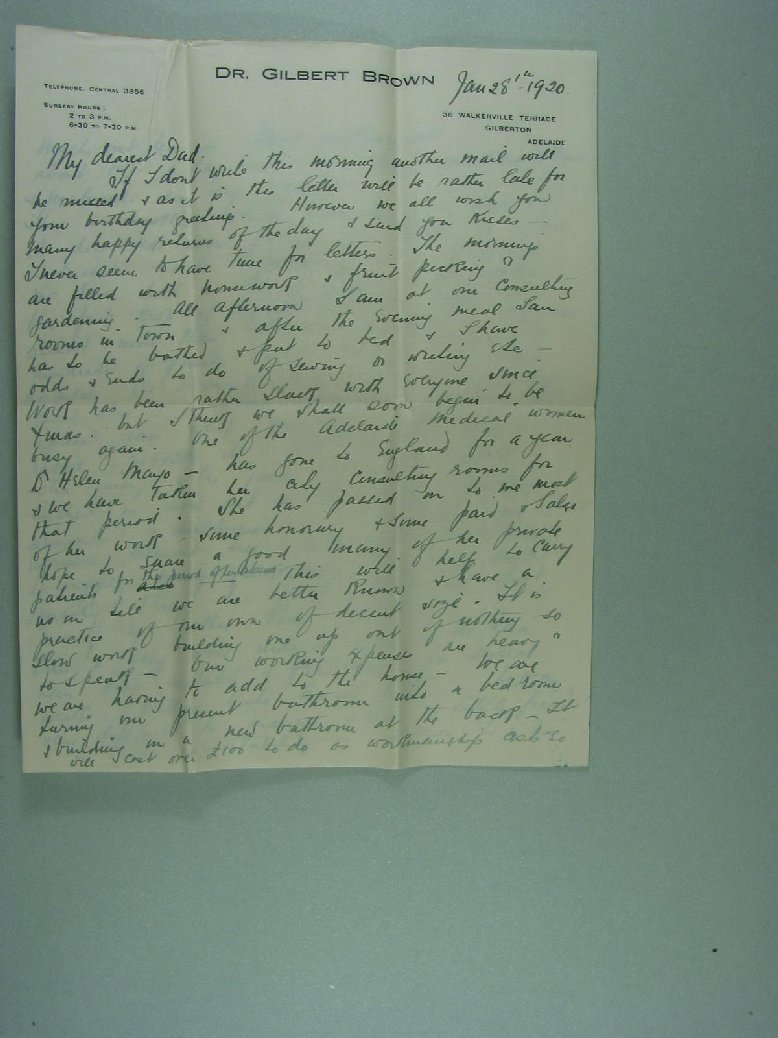 DR. GILBERT BROWN
Jan 28th 1920
TELEPHONE, CENTRAL 3956
SURGERY HOURS:
2 TO 3 P.M.
6-30 TO 7-30 P.M
36 WALKERVILLE TERRACE
GILBERTON
ADELAIDE
My dearest Dad.
If I dont write this morning another mail will
be missed & as it is this letter will be rather late for
your birthday greetings. However we all wish you
many happy returns of the day & send you kisses -
I never seem to have time for letters. The mornings
are filled with housework & fruit picking &
gardening. All afternoon I am at our consulting
rooms in town & after the evening meal Ian
has to be bathed & put to bed & I have
odds & ends to do of sewing or writing etc -
Work has been rather slack with everyone since
Xmas. but I think we shall soon begin to be
busy again. One of the Adelaide medical women
Dr Helen Mayo - has gone to England for a year
& we have taken her city consulting rooms for
that period. She has passed on to me most
of her work - some honorary & some paid & I also
hope to share a good many of her private
patients for the period of her absence this will help to carry
us on till we are better known & have a
practice of our own of decent size. It is
slow work building one up out of nothing so
to speak - Our working expenses are heavy &
we are having to add to the house - We are
turning our present bathroom into a bedroom
& building on a new bathroom at the back - It
will cost over £100 to do as workmanship costs so